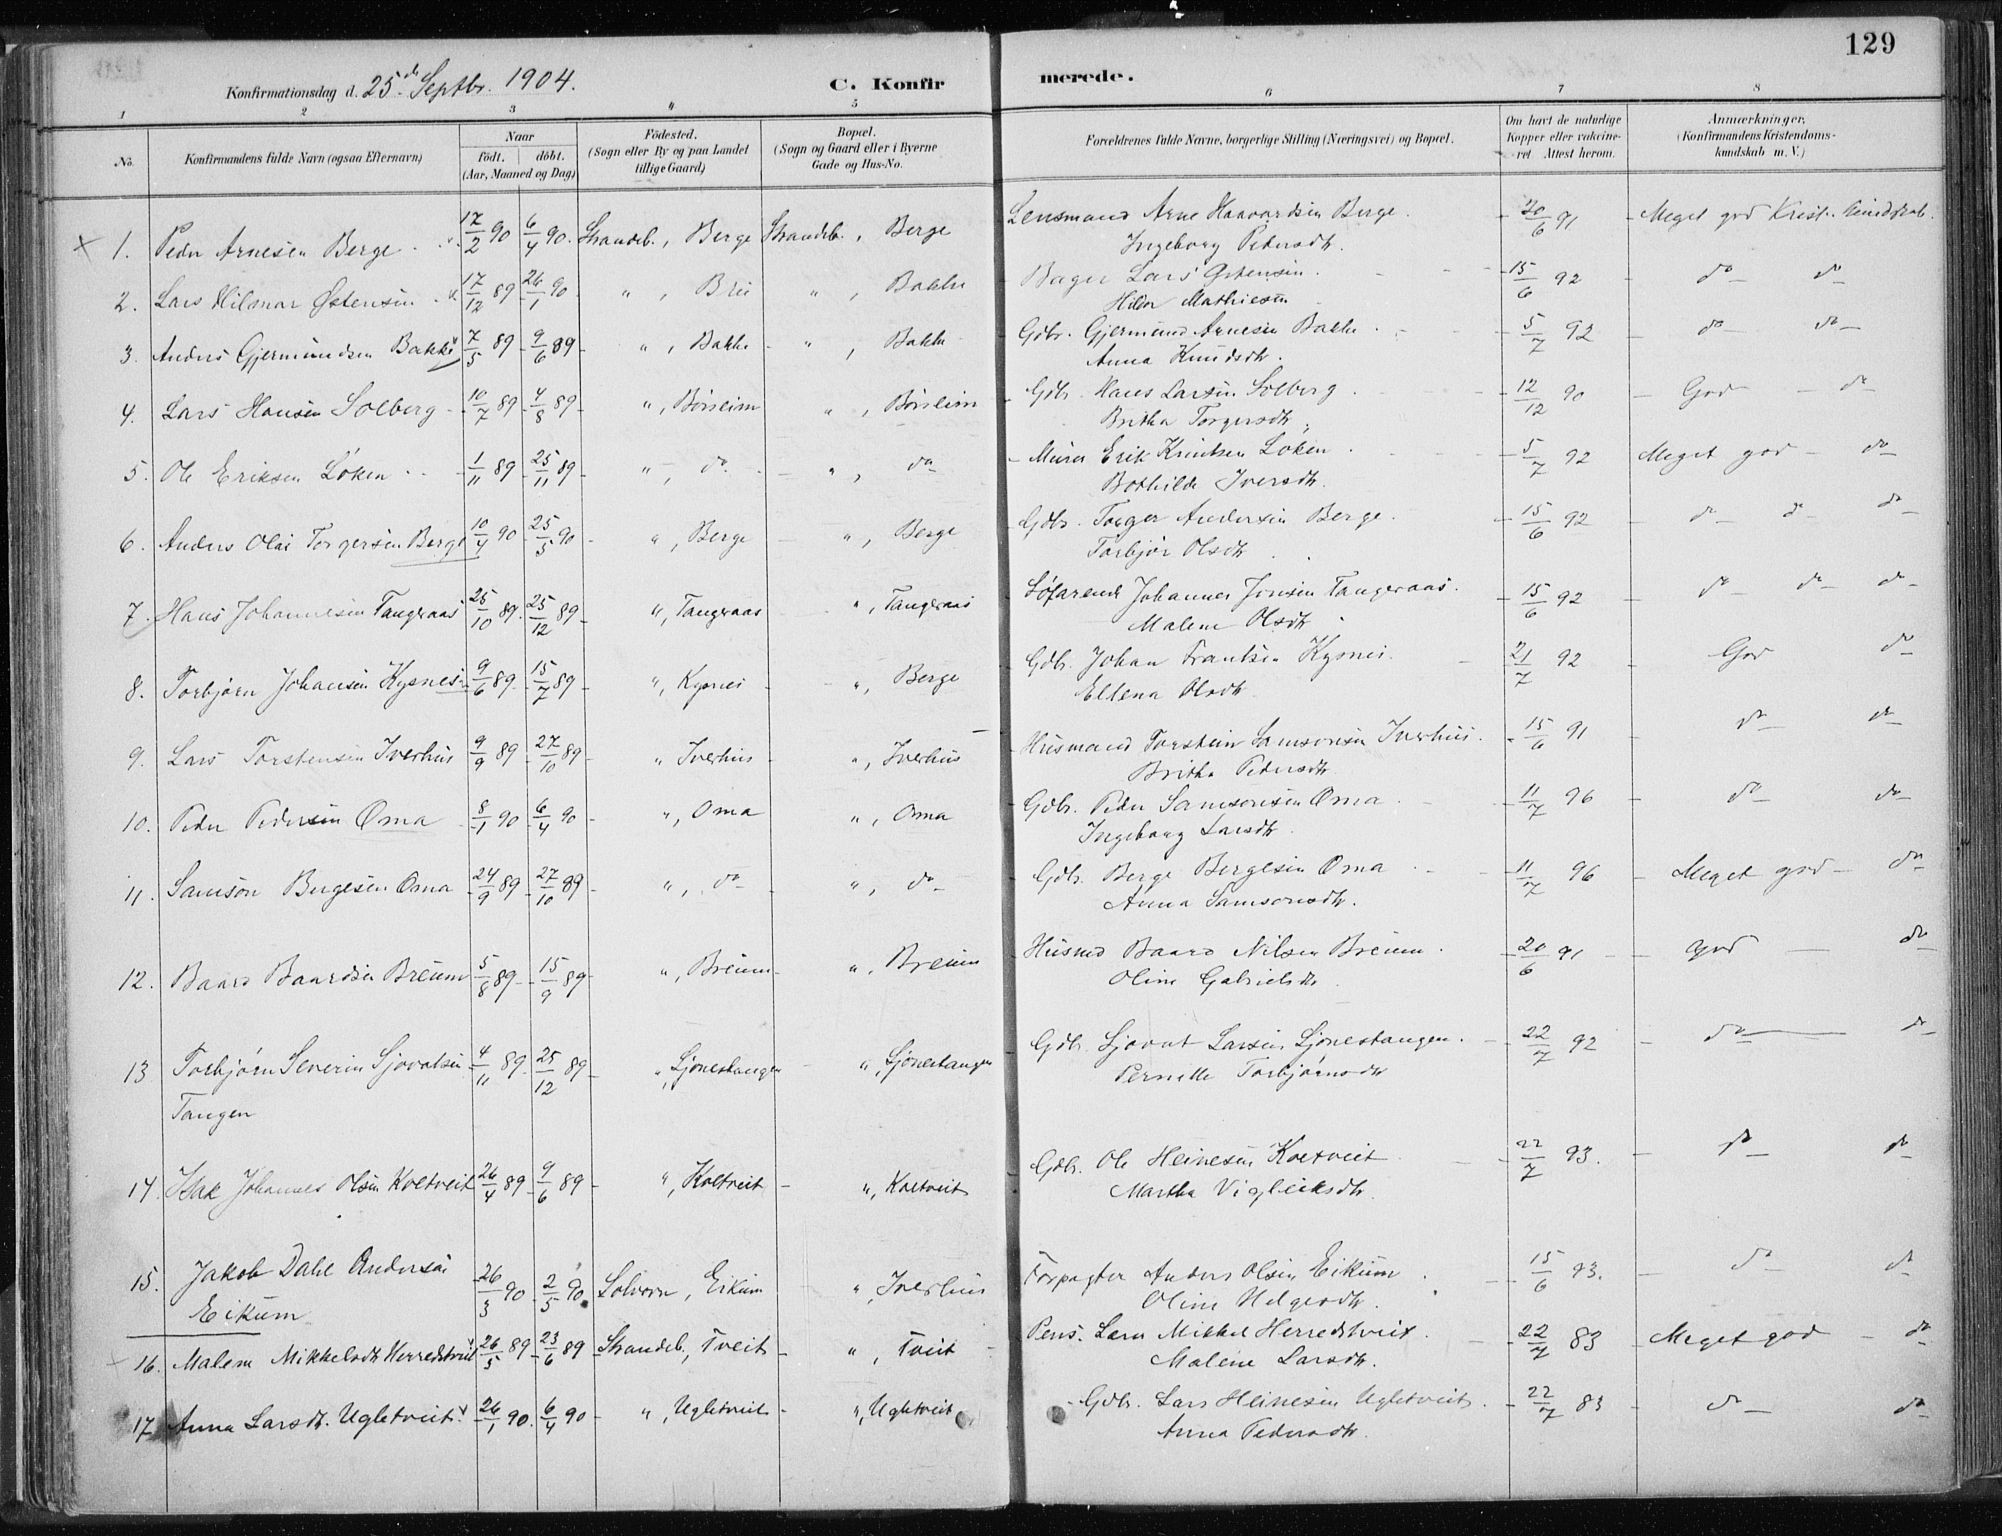 129
Konfirmationsdag d. 25de Septbr. 1904. C. Konfirmerede.
1 2 3 4 5 6 7 8
No. Konfirmandens fulde Navn (ogsaa Efternavn) Naar født. døbt. (Aar, Maaned og Dag) Fødested. (Sogn eller By og paa Landet tillige Gaard) Bopæl. (Sogn og Gaard eller i Byerne Gade og Hus-No. Forældrenes fulde Navne, borgerlige Stilling (Næringsvei) og Bopæl. Om havt de naturlige Kopper eller vaccineret Attest herom. Anmærkninger, (Konfirmandens Kristendomskundskab m. V.)
1. Peder Arnesen Berge 17/2 90 6/4 90. Strandeb., Berge Strandeb., Berge Lensmand Arne Haavardsen Berge. 20/6 91 Meget god Krist. kundskab.
Ingeborg Pedersdtr.
2. Lars Hilmar Østensen 17/12 89 26/1 90 " , Brei " , Bakke Bager Lars Østensen. 15/6 92 do do
Hilda Mathiesen
3. Anders Gjermundsen Bakke 7/5 89 9/6 89 " , Bakke " , Bakke Gdbr. Gjermund Arnesen Bakke. 5/7 92 do do
Anna Knudsdtr.
4. Lars Hansen Solberg 10/7 89 4/8 89 " , Børsleim " , Børsleim Gdbr. Hans Larsen Solberg. 12/12 90 God do
Britha Torgersdtr.
5. Ole Eriksen Løken 1/11 89 25/11 89 " , do " , do Murer Erik Knutsen Løken. 5/7 92 Meget god do
Bothilde Iversdtr.
6. Anders Olai Torgersen Berge 10/4 90 25/5 90 " , Berge " , Berge Gdbr. Torger Andersen Berge. 15/6 92 do do do
Torbjør Olsdtr
7. Hans Johannesen Tangeraas 25/10 89. 25/12 89 " , Tangeraas " , Tangeraas Søfarende Johannes Jonsen Tangeraas. 15/6 92 do do do
Malene Olsdtr.
8. Torbjørn Johansen Kysnes 9/6 89. 15/7 89 " , Kysnes " , Berge Gdbr. Johan Frantsen Kysnes. 21/7 92 God do
Ellena Olsdtr.
9. Lars Torstensen Iverhus 9/9 89 27/10 89 " Iverhus " , Iverhus Husmand Torstein Samsonsen Iverhus. 15/6 91 do do
Britha Pedersdtr.
10. Peder Pedersen Oma 8/1 90 6/4 90 " , Oma " , Oma Gdbr. Peder Samsonsen Oma 11/7 96 do do
Ingeborg Larsdtr.
11. Samson Bergesen Oma 24/9 89 27/10 89 " , do " , do Gdbr. Berge Bergesen Oma 11/7 96 Meget god do
Anna Samsonsdtr.
12. Baard Baardsen Breum 5/8 89 15/9 89 " , Breum " , Breum Husmd Baard Nilsen Breum. 20/6 91 god do
Oline Gabrielsdtr.
13 Torbjørn Severin Sjovatsen 4/11 89. 25/12 89 " , Ljonestangen " , Ljonestangen Gdbr. Sjovat Larsen Ljonestangen. 22/7 92 do do
Tangen Pernille Torbjørnsdtr
14. Isak Johannes Olsen Kvetveit 26/4 89 9/6 89 " , Kvetveit " , Kvetveit Gdbr. Ole Heinesen Kvetveit 22/7 93. do do
Martha Vigleiksdtr.
15. Jakob Dahl Andersen 26/3 90 2/5 90 Solvorn, Eikum " , Iverhus Forpagter Anders Olsen Eikum. 15/6 93. do do
Eikum Oline Helgesdtr.
16. Malene Mikkelsdtr Herredstveit 26/5 89 23/6 89 Strandeb., Tveit " , Tveit Pens. Lærer Mikkel Herredstveit. 22/7 83 Meget god do
Malene Larsdtr.
17 Anna Larsdtr. Ugletveit 26/1 90. 6/4 90 " , Ugletveit " , Ugletveit Gdbr. Lars Heinesen Ugletveit. 22/7 83 do do
Anna Pedersdtr.